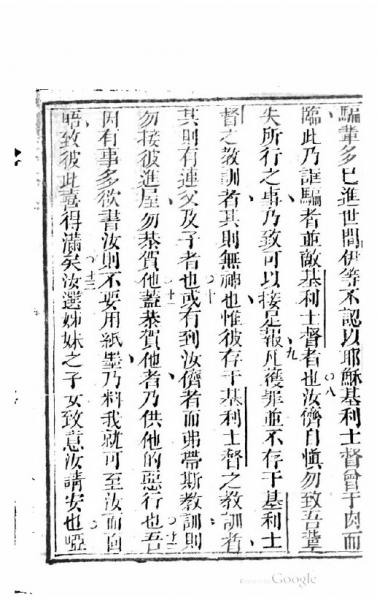 騙輩多已進世間伊等不認以耶穌基利士督曾于肉而
臨此乃誆騙者並敵基利士督者也汝儕自慎勿致吾輩
失所行之事乃致可以接足報凡獲罪並不存于基利士
督之教訓者其則無神也惟彼存于基利士督之教訓者
其則有連父及子者也或有到汝儕者而弗帶斯教訓則
勿接彼進屋勿恭賀他蓋恭賀他者乃供他的惡行也吾
因有事多欲書汝則不要用紙墨乃料我就可至汝而面
晤致彼此喜得滿矣汝選姊妹之子女致意汝請安也啞
八
九
十
十一
十二
十三
Google